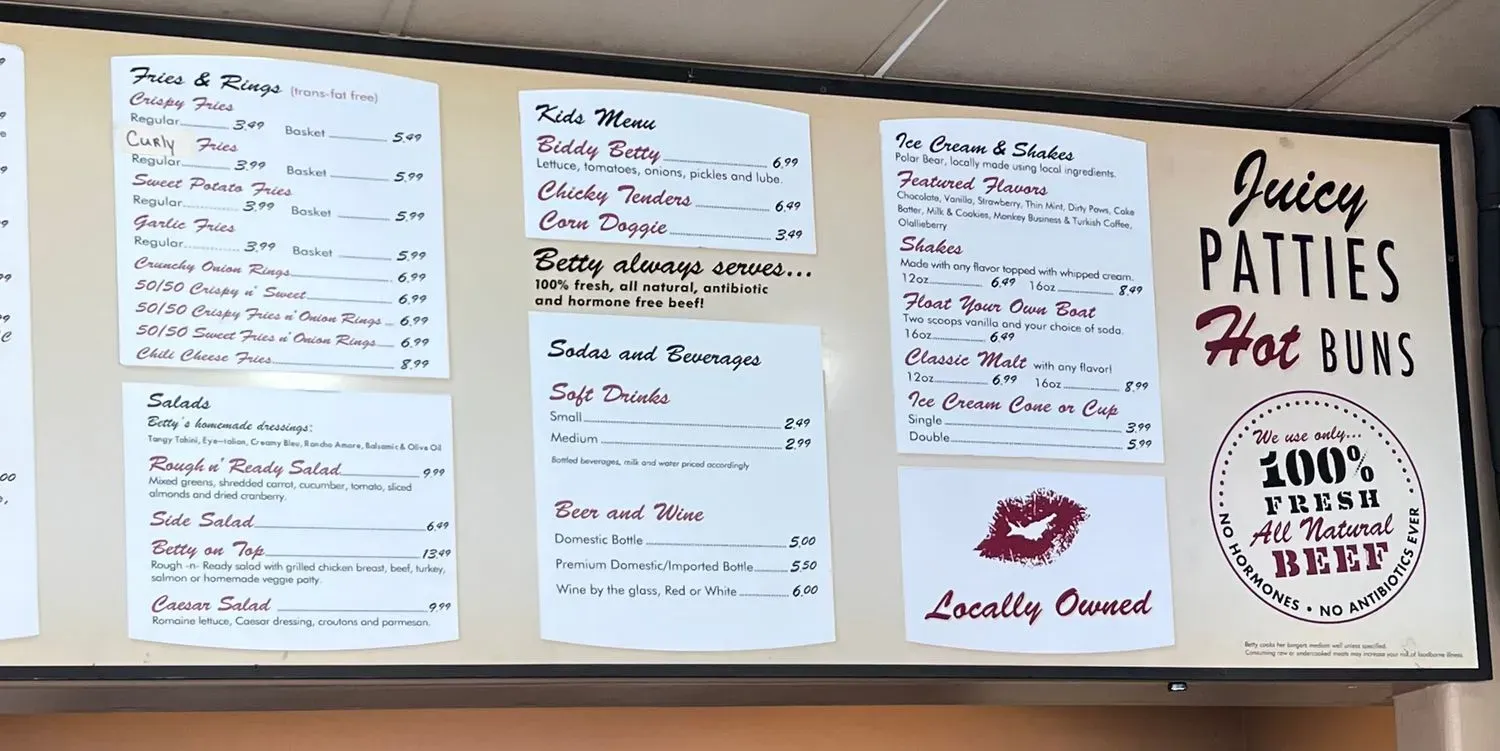 Fries & Rings (trans-fat free)
Crispy Fries
Regular 3.49 Basket 5.49
Curly Fries
Regular 3.99 Basket 5.99
Sweet Potato Fries
Regular 3.99 Basket 5.99
Garlic Fries
Regular 3.99 Basket 5.99
Crunchy Onion Rings 6.99
50/50 Crispy n' Sweet 6.99
50/50 Crispy Fries n' Onion Rings 6.99
50/50 Sweet Fries n' Onion Rings 6.99
Chili Cheese Fries 8.99
Salads
Betty's homemade dressings:
Tangy Tahini, Eye-talian, Creamy Bleu, Rancho Amore, Balsamic & Olive Oil
Rough n' Ready Salad 9.99
Mixed greens, shredded carrot, cucumber, tomato, sliced
almonds and dried cranberry.
Side Salad 6.49
Betty on Top 13.49
Rough -n- Ready salad with grilled chicken breast, beef, turkey,
salmon or homemade veggie patty.
Caesar Salad 9.99
Romaine lettuce, Caesar dressing, croutons and parmesan.
Kids Menu
Biddy Betty 6.99
Lettuce, tomatoes, onions, pickles and lube.
Chicky Tenders 6.49
Corn Doggie 3.49
Betty always serves...
100% fresh, all natural, antibiotic
and hormone free beef!
Sodas and Beverages
Soft Drinks
Small 2.49
Medium 2.99
Bottled beverages, milk and water priced accordingly
Beer and Wine
Domestic Bottle 5.00
Premium Domestic/Imported Bottle 5.50
Wine by the glass, Red or White 6.00
Ice Cream & Shakes
Polar Bear, locally made using local ingredients.
Featured Flavors
Chocolate, Vanilla, Strawberry, Thin Mint, Dirty Paws, Cake
Batter, Milk & Cookies, Monkey Business & Turkish Coffee,
Olallieberry
Shakes
Made with any flavor topped with whipped cream.
12oz 6.49 16oz 8.49
Float Your Own Boat
Two scoops vanilla and your choice of soda.
16oz 6.49
Classic Malt with any flavor!
12oz 6.99 16oz 8.99
Ice Cream Cone or Cup
Single 3.99
Double 5.99
Locally Owned
Juicy
PATTIES
Hot BUNS
We use only...
100%
FRESH
All Natural
BEEF
NO HORMONES • NO ANTIBIOTICS EVER
Betty cooks her burgers medium well unless specified.
Consuming raw or undercooked meats may increase your risk of foodborne illness.